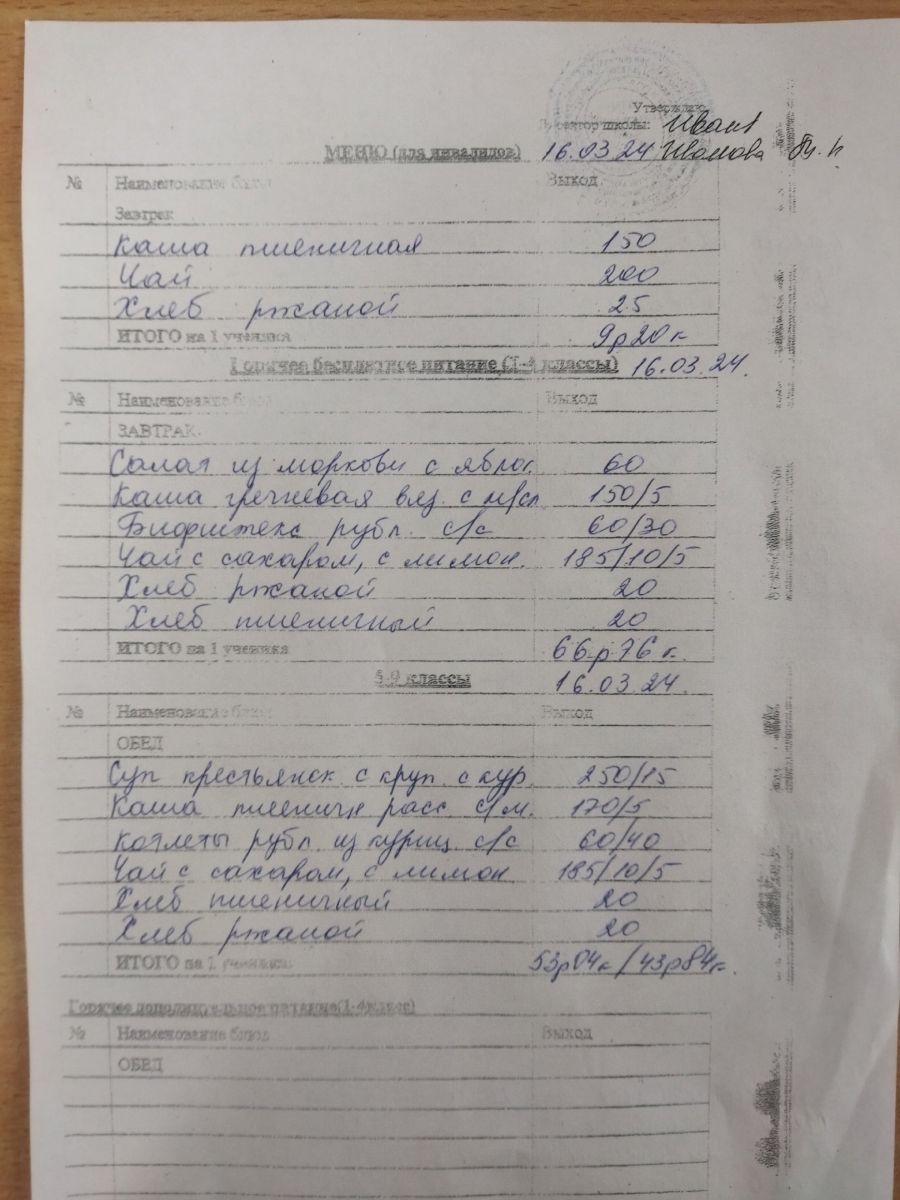 Утверждаю
Директор школы: Иван
МЕНЮ (для инвалидов) 16.03.24 Иванова
№ Наименование блюд Выход
Завтрак
Каша пшеничная 150
Чай 200
Хлеб ржаной 25
ИТОГО на 1 ученика 9р20к
Горячее бесплатное питание (1-4 классы) 16.03.24.
№ Наименование блюд Выход
ЗАВТРАК
Салат из моркови с яблок. 60
Каша гречневая вяз. с м/сл 150/5
Бифштекс рубл. с/с 60/30
Чай с сахаром, с лимон. 185/10/5
Хлеб ржаной 20
Хлеб пшеничный 20
ИТОГО на 1 ученика 66р76к.
5-9 классы 16.03.24.
№ Наименование блюд Выход
ОБЕД
Суп крестьянск. с круп. с кур. 250/15
Каша пшеничн расс. с/м. 170/5
Котлеты рубл. из куриц. с/с 60/40
Чай с сахаром, с лимон 185/10/5
Хлеб пшеничный 20
Хлеб ржаной 20
ИТОГО на 1 ученика 53р04к/43р84к.
Горячее дополнительное питание(1-4класс)
№ Наименование блюд Выход
ОБЕД